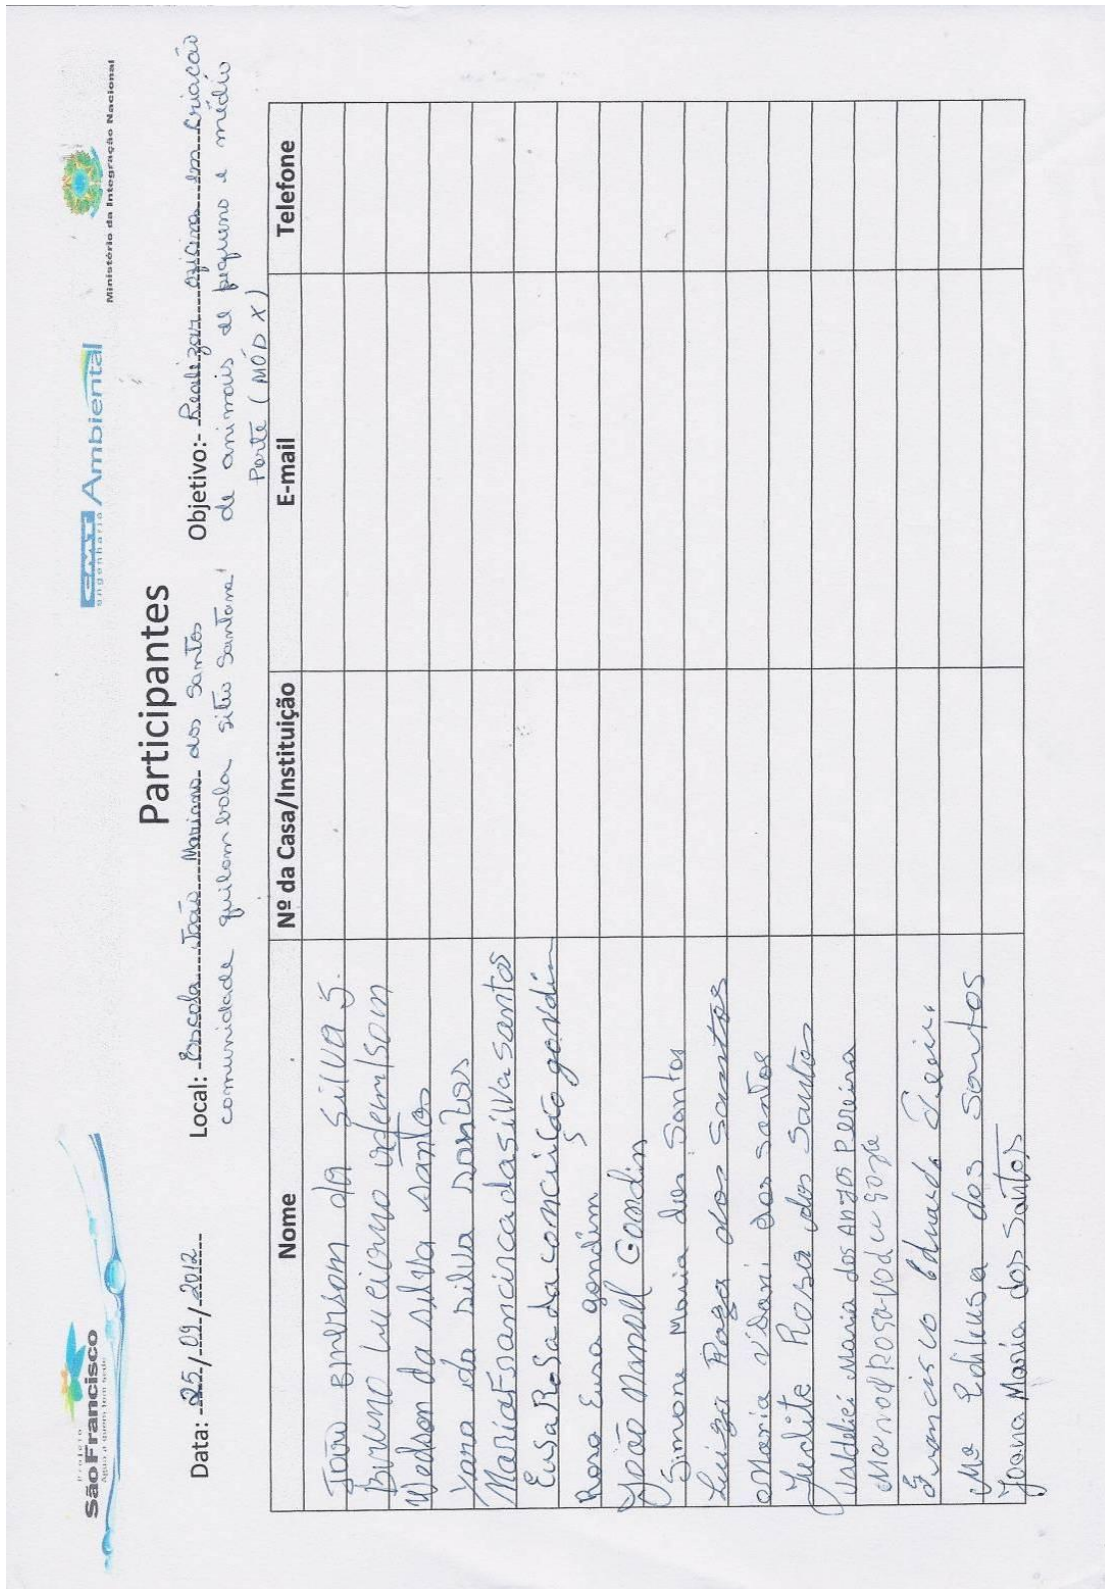 Projeto
São Francisco
Água a quem tem sede
CMT Ambiental
engenharia
Ministério da Integração Nacional
Participantes
Data: 25/09/2012 Local: Escola João Mariano dos Santos Objetivo:- Realizar oficina em criação
comunidade quilombola sítio Santana de animais de pequeno e médio
Porte (MÓD X)
Nome Nº da Casa/Instituição E-mail Telefone
João Emerson da Silva S.
Bruno Luciano
Wedson da silva santos
Yara da Silva santos
Maria Francisca da silva santos
Eusa Rosa da conceição gondin
Rosa Eusa gondim
João Manoel Gondin
Simone Maria dos Santos
Luiza Roza dos santos
Maria Vibani dos santos
Judite Rosa dos Santos
Valdelici Maria dos Anjos Pereira
Manoel Rosa
Francisco Eduardo
Mª Edileusa dos Santos
Joana Maria dos Santos